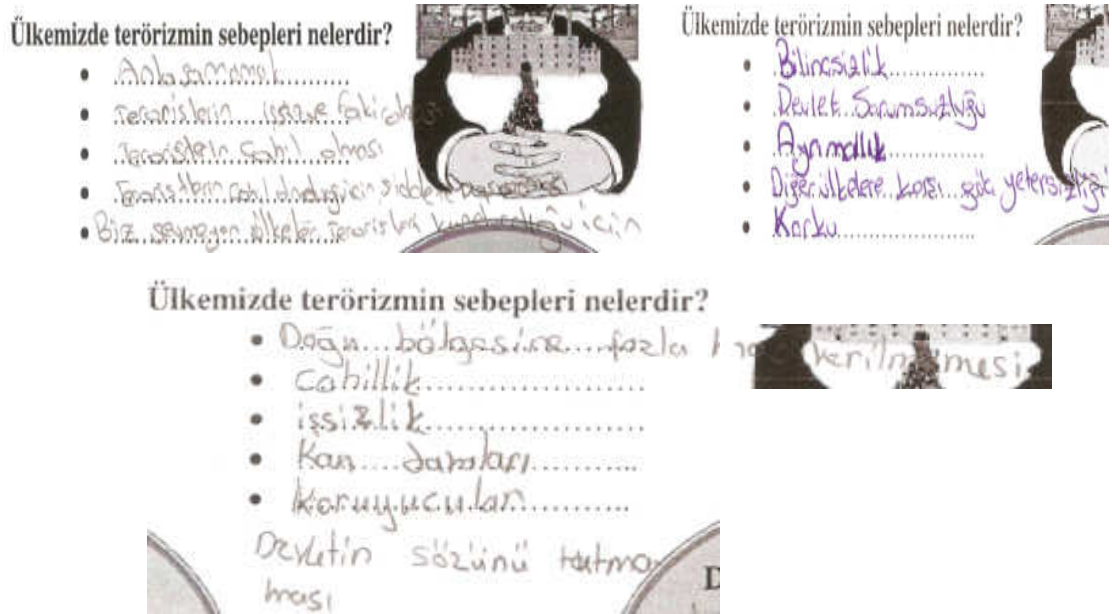 Ülkemizde terörizmin sebepleri nelerdir?
• Anlaşamamak
• Teröristlerin işsiz ve fakir olması
• Teröristlerin cahil olması
• Teröristlerin cahil olduğu için şiddete
• Biz sevmeyen ülkeler teröristleri için
Ülkemizde terörizmin sebepleri nelerdir?
• Bilinçsizlik
• Devlet Sorumsuzluğu
• Ayrımcılık
• Diğer ülkelere karşı yetersizliği
• Korku
Ülkemizde terörizmin sebepleri nelerdir?
• Doğu bölgesine fazla verilmemesi
• Cahillik
• işsizlik
• Kan davaları
• Koruyucuları
Devletin sözünü tutma
ması
D